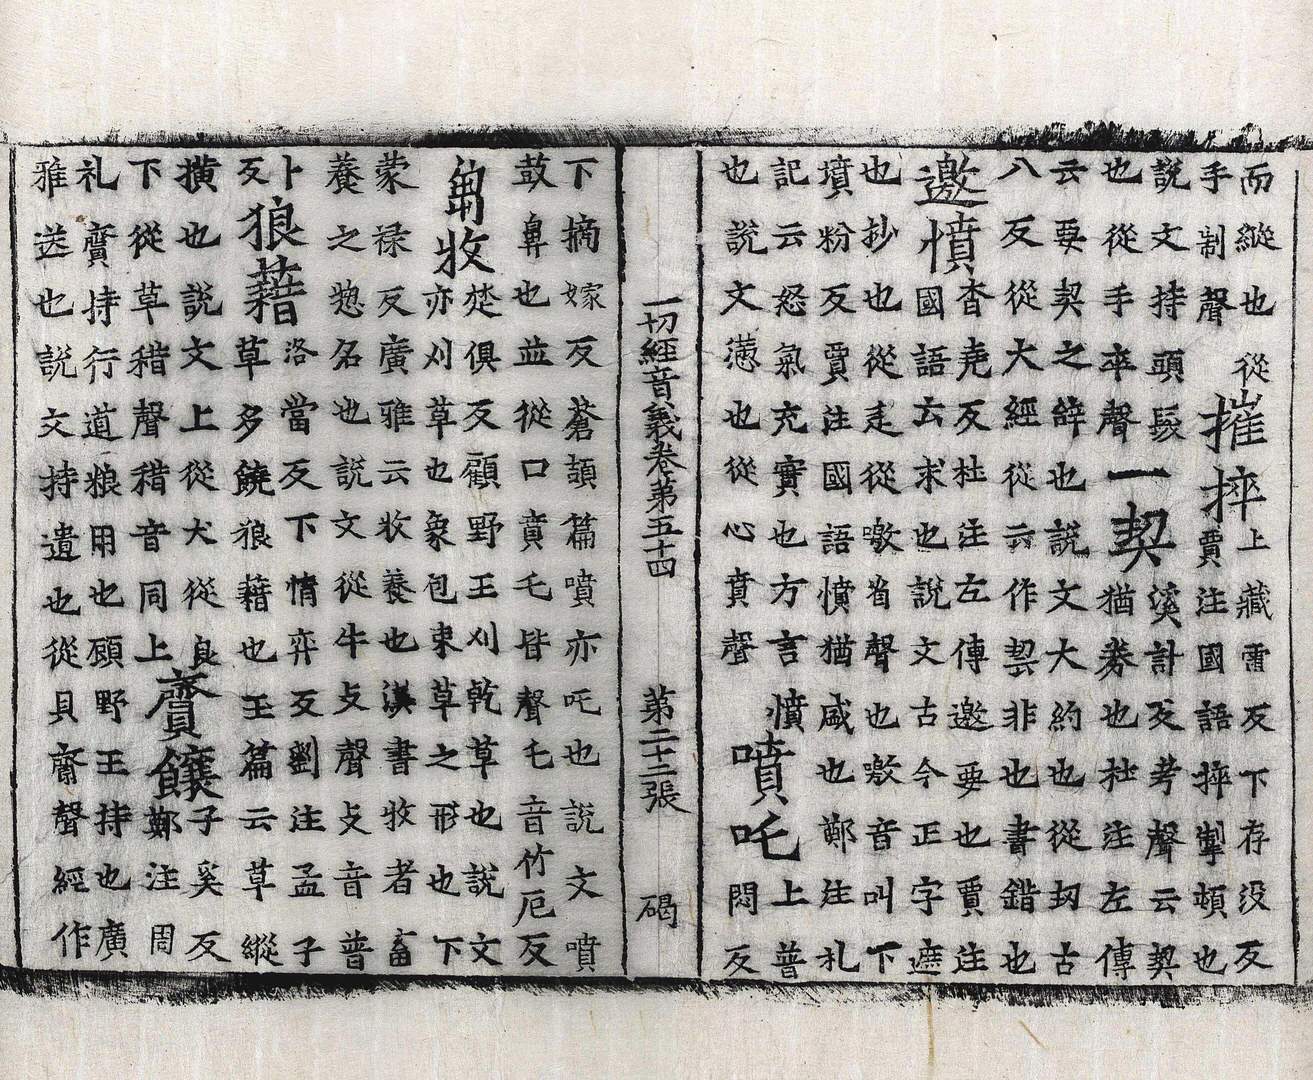 而縱也從
手制聲
摧捽
上藏雷反下存没反
賈注國語捽掣頓也
説文持頭髮
也從手卒聲
一契
溪計反考聲云契
猶券也杜注左傳
云要契之辭也説文大約也從㓞古
八反從大經從云作契非也書錯也
邀憤
杳堯反杜注左傳邀要也賈注
國語云求也説文古今正字遮
也抄也從辵從敫省聲也敫音叫下
墳粉反賈注國語憤猶盛也鄭注礼
記云怒氣充實也方言憤
也説文懣也從心賁聲
噴吒
上普
悶反
一切經音義卷第五十四 第二十二張 碣
下摘嫁反蒼頡篇噴亦吒也説文噴
鼓鼻也並從口賁乇皆聲乇音竹厄反
芻牧
楚俱反顧野王刈乾草也説文
亦刈草也象包束草之形也下
蒙禄反廣雅云牧養也漢書牧者畜
養之惣名也説文從牛攴聲攴音普
卜
反
狼藉
洛當反下情弈反劉注孟子
草多饒狼藉也玉篇云草縱
撗也説文上從犬從良
下從草耤聲耤音同上
齎饟
子奚反
鄭注周
礼齎持行道粮用也顧野王持也廣
雅送也説文持遺也從貝齊聲經作